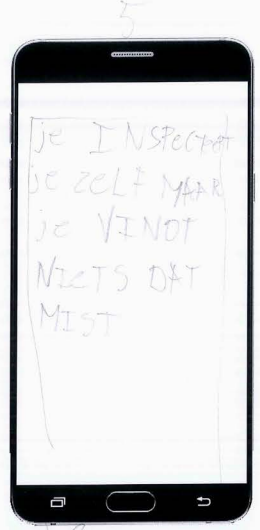 5
je INSPECTEET
je zELF MAAR
je VINDT
NIETS DAT
MIST